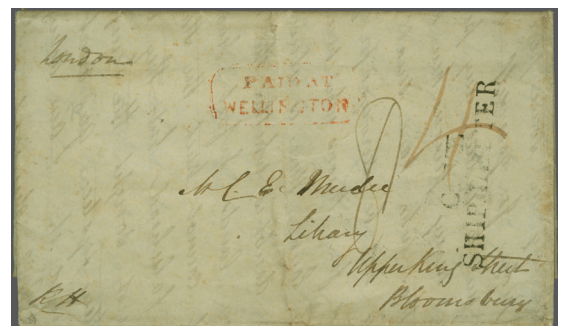 London
PAID AT
WELLINGTON
4
8
SHIP LETTER
Mr C. E. Mudie
Library
Upper King Street
Bloomsbury